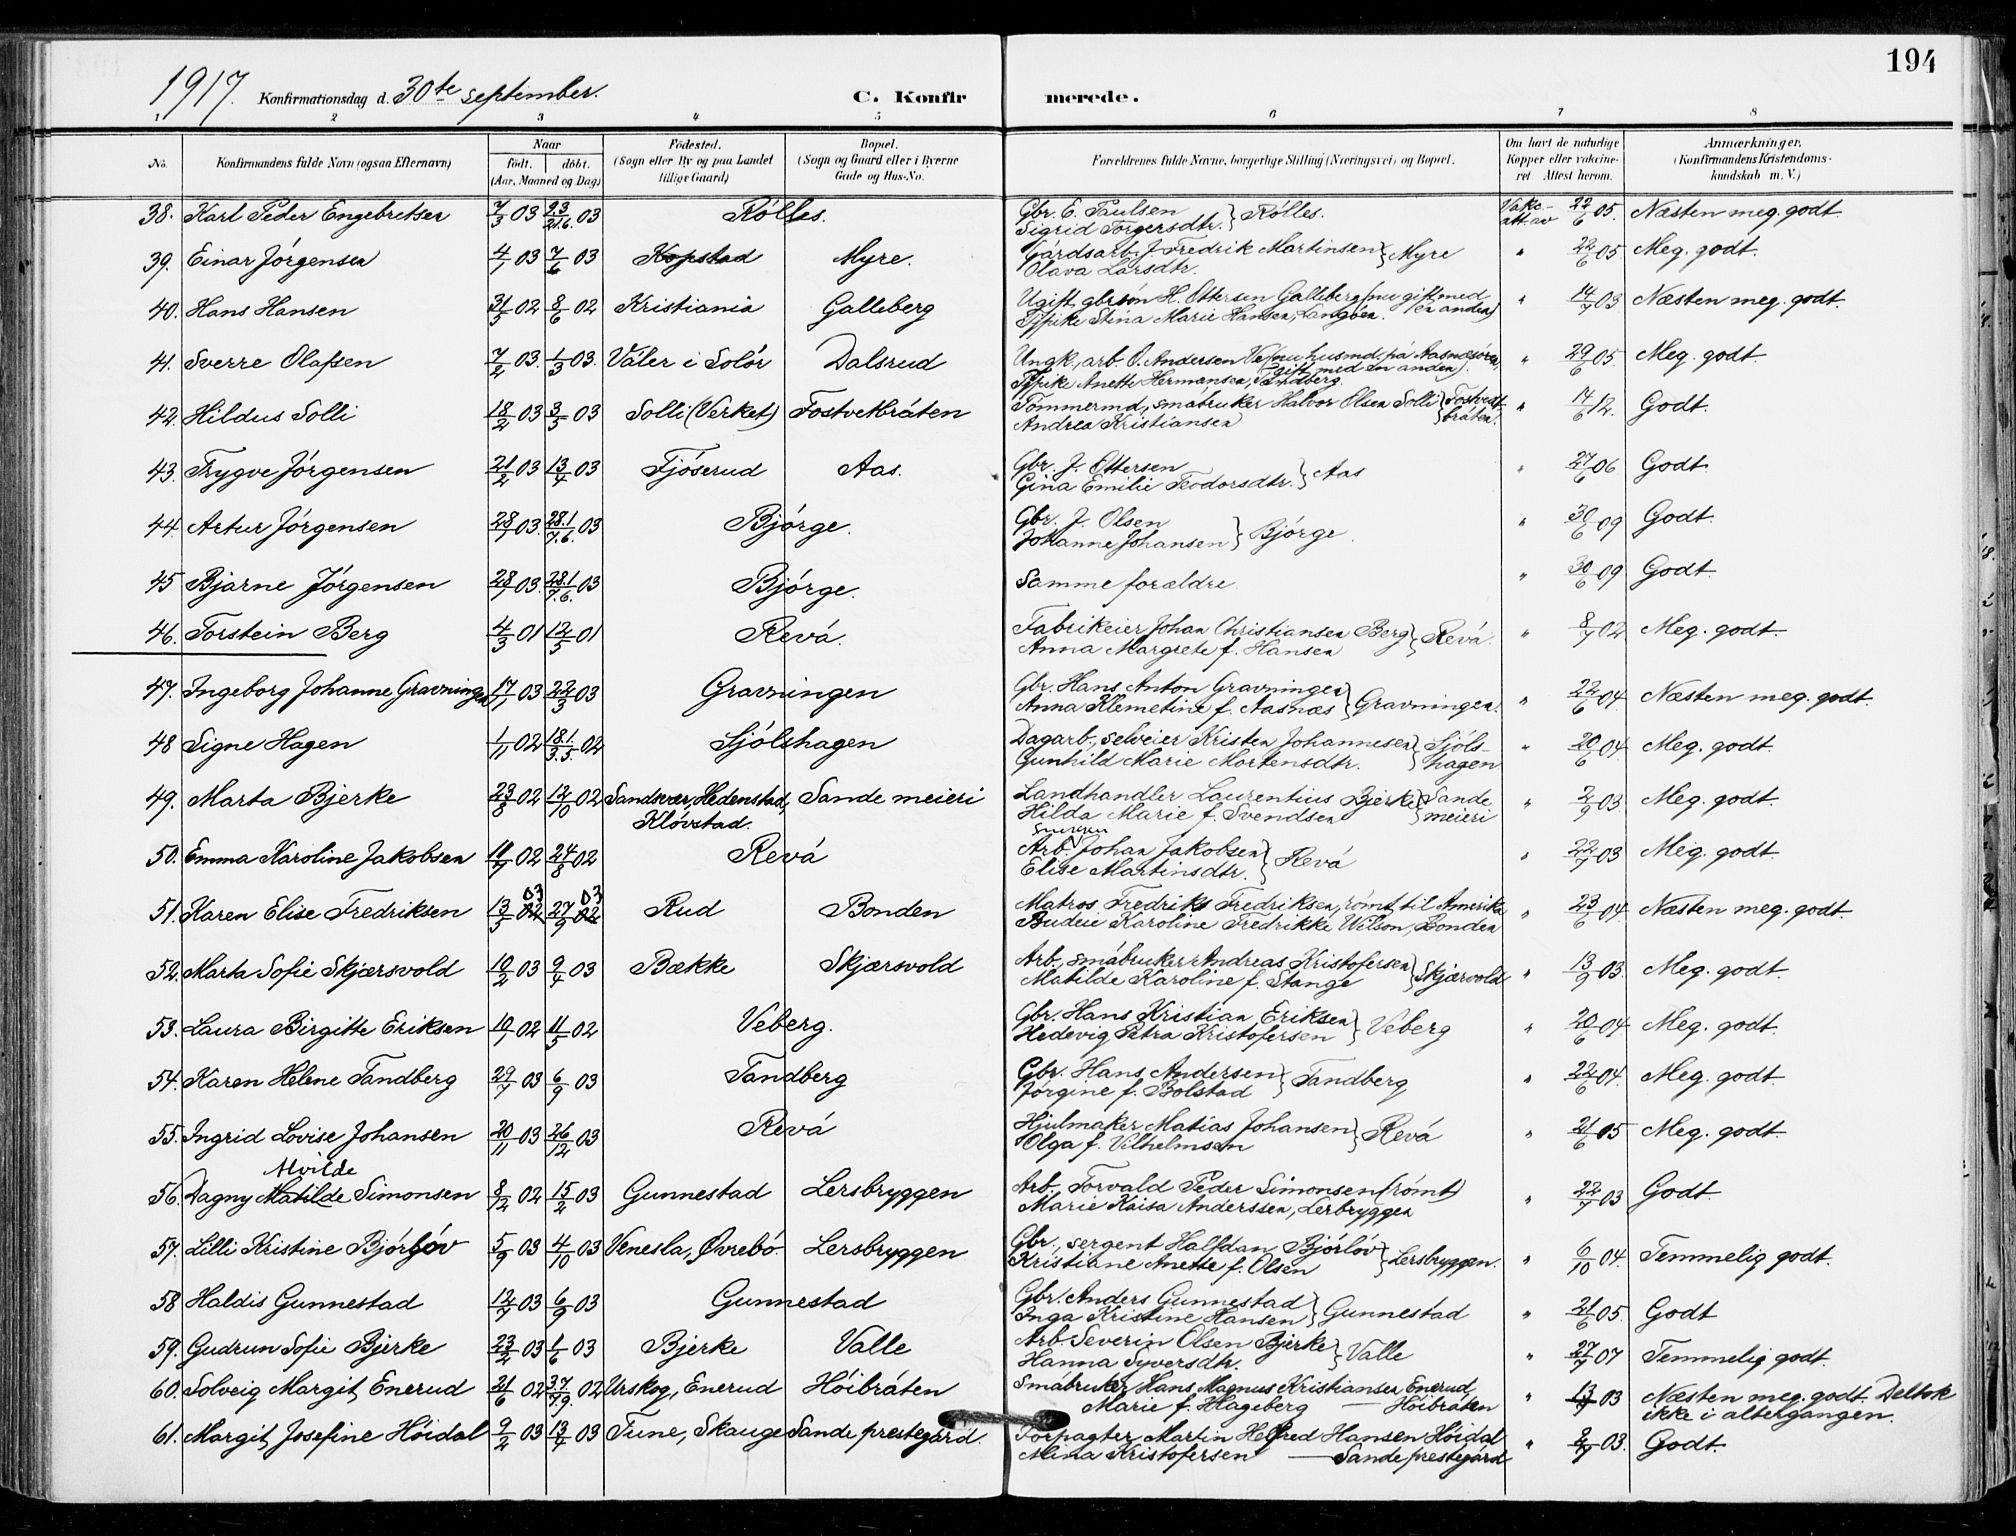 194
1917. Konfirmationsdag d. 30te september. C. Konfir merede.
1 2 3 4 5 6 7 8
No. Konfirmandens fulde Navn (ogsaa Efternavn) Naar født. døbt. (Aar, Maaned og Dag) Fødested. (Sogn eller By og paa Landet tillige Gaard) Bopæl. (Sogn og Gaard eller i Byerne Gade og Hus-No. Forældrenes fulde Navne, borgerlige Stilling (Næringsvei) og Bopæl. Om havt de naturlige Kopper eller vakcineret. Attest herom. Anmærkninger. (Konfirmandens Kristendomskundskab m. V.)
38. Karl Peder Engebretsen 7/3 03 23/21.6. 03 Rólles. Gbr. E. Paulsen } Rólles. Vaks. att. av 22/6 05. Næsten meg. godt.
Sigrid Torgersdtr.
39. Einar Jórgensen 4/1 03 7/6 03 Kopstad Myre. Gårdsarb. J. Fredrik Martinsen } Myre " 22/6 05. Meg. godt.
Olava Larsdtr.
40. Hans Hansen 31/5 02 8/6 02 Kristiania Galleberg Ugift gbrsón H. Ottersen Galleberg (nu gift med en anden) " 14/7 03 Næsten meg. godt.
Pike Stina Marie Hansen, Langóen.
41. Sverre Olafsen 7/2 03. 1/3 03. Váler i Solór Dalsrud Ungk., arb. O. Andersen Ve (nu husmd. på Aasnæsóra, gift med en anden). " 29/6 05. Meg. godt
Pike Anette Hermansen, Tandberg.
42. Hildus Solli 18/2 03 3/5 03 Solli (Verket) Fostvetbráten Tómmermd., småbruker Halvor Olsen Solli } Fostvedtbråten. " 14/6 12. Godt.
Andrea Kristiansen
43. Trygve Jórgensen 21/2 03 13/4 03 Fjóserud Aas. Gbr. J. Ottersen } Aas " 27/6 06 Godt.
Gina Emilie Teodorsdtr.
44. Artur Jórgensen 28/1 03. 28.1/7.6. 03 Bjórge. Gbr. J. Olsen } Bjórge. " 30/6 09 Godt.
Johanne Johansen
45 Bjarne Jórgensen 28/1 03. 28.1/7.6. 03 Bjórge. Samme forældre. " 30/6 09 Godt.
46. Torstein Berg 4/3 01 12/5 01 Revá. Fabrikeier Johan Christiansen Berg } Revá. " 8/7 02 Meg. godt.
Anna Margrete f. Hansen
47. Ingeborg Johanne Gravningen 17/1 03 22/3 03 Gravningen Gbr. Hans Anton Gravningen } Gravningen. " 22/6 04. Næsten meg. godt.
Anna Klemetine f. Aasnæs
48 Signe Hagen 1/11 02 18.1/3.5. 02 Sjólshagen Dagarb., selveier Kristen Johannesen } Sjólshagen " 20/6 04. Meg. godt.
Gunhild Marie Mortensdtr.
49. Marta Bjerke 23/8 02 12/10 02 Sandsvær, Hedenstad, Klóvstad. Sande meieri Landhandler Laurentius Bjerke } Sande meieri " 2/9 03. Meg. godt.
Hilda Marie f. Svendsen
50. Emma Karoline Jakobsen 11/7 02 24/8 02 Revá Arb. Johan Jakobsen } Revá " 22/7 03 Meg. godt.
Elise Martinsdtr.
51. Karen Elise Fredriksen 13/5 03 27/9 03 Rud Bonden Matros Fredrik Fredriksen, rómt til Amerika " 23/6 04. Næsten meg. godt.
Budeie Karoline Fredrikke Wilson, Bonden
52. Marta Sofie Skjærsvold 10/2 03 9/4 03 Bække Skjærsvold Arb., småbruker Andreas Kristofersen } Skjærsvold " 13/9 03. Meg. godt.
Matilde Karoline f. Stange
53. Laura Birgitte Eriksen 10/1 02 11/5 02 Veberg. Gbr. Hans Kristian Eriksen } Veberg " 20/6 04 Meg. godt.
Hedevig Petra Kristofersen
54. Karen Helene Tandberg 29/7 03 6/9 03 Tandberg Gbr. Hans Andersen } Tandberg " 22/6 04. Meg. godt.
Jórgine f. Bolstad
55. Ingrid Lovise Johansen 20/11 03 26/12 03 Revá Hjulmaker Matias Johansen } Revá " 21/6 05 Meg. godt.
Olga f. Vilhelmsen
Alvilde
56. Dagny Matilde Simonsen 8/12 02 15/2 03 Gunnestad Lersbryggen Arb. Torvald Peder Simonsen (rómt) " 22/7 03 Godt.
Marie Kaisa Anderssen, Lerbryggen
57. Lilli Kristine Bjórlóv 5/9 03 4/10 03 Venesla, Øvrebó. Lersbryggen Gbr., sergent Halfdan Bjórlóv } Lersbryggen. " 6/10 04. Temmelig godt.
Kristiane Anette f. Olsen
58 Haldis Gunnestad 12/7 03 6/9 03 Gunnestad Gbr. Anders Gunnestad } Gunnestad " 21/6 05. Godt
Inga Kristine Hansen
59. Gudrun Sofie Bjerke 23/2 03 1/6 03 Bjerke Valle Arb. Severin Olsen Bjerke } Valle " 27/7 07 Temmelig godt.
Hanna Syversdtr.
60. Solveig Margit Enerud 21/6 02 02 Urskog, Enerud Hóibráten Småbruker Hans Magnus Kristiansen Enerud, " 13/7 03 Næsten meg. godt. Deltok
Marie f. Hageberg — Hóibráten ikke i altergangen.
61. Margit Josefine Hóidal 9/2 03 13/4 03 Tune, Skauge Sande prestegård. Forpagter Martin Helfred Hansen Hóidal " 03. Godt.
Mina Kristofersen — Sande prestegård